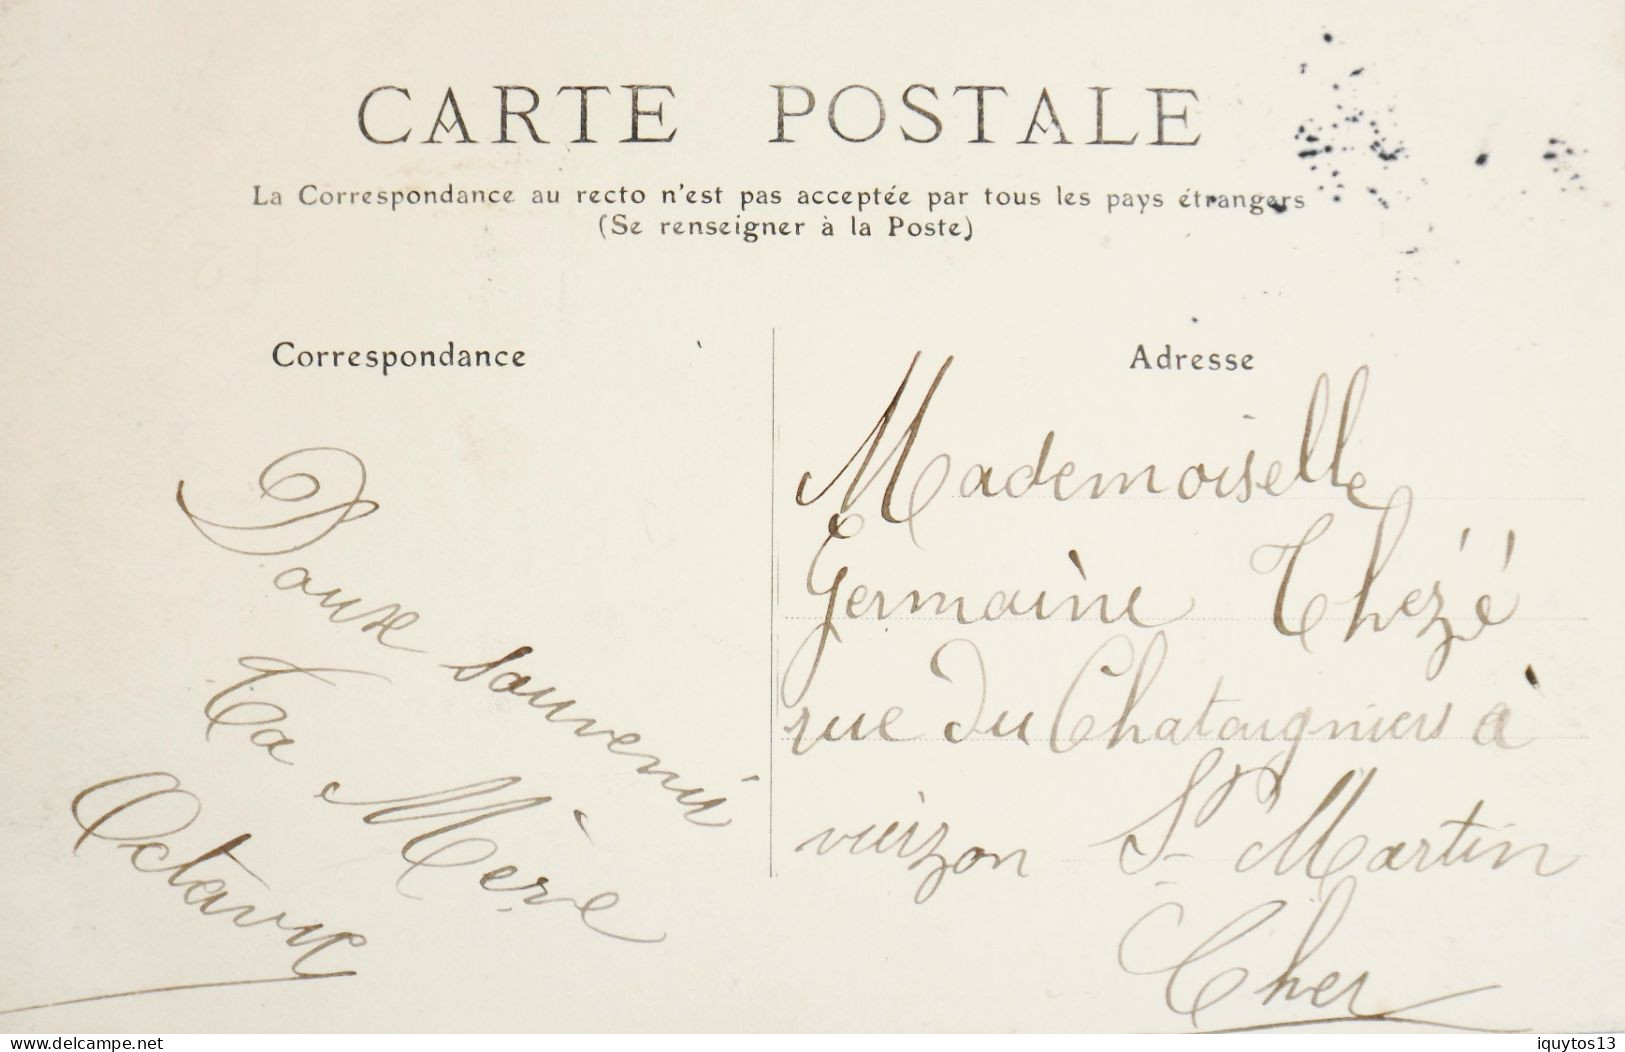 CARTE POSTALE
La Correspondance au recto n'est pas acceptée par tous les pays étrangers
(Se renseigner à la Poste)
Correspondance
Doux souvenir
Ta Mère
Octavie
Adresse
Mademoiselle
Germaine Thezé
rue du Chataigniers à
vierzon St Martin
Cher
www.delcampe.net
iquytos13